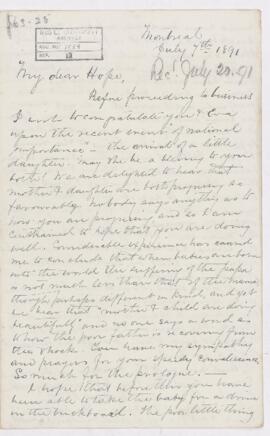 63-28
Montreal
July 7th 1891
Rec'd July 20. 91
My dear Hope,
Before proceeding to business
I wish to congratulate you & Eva
upon the recent event of "national
importance" – the arrival of a little
daughter. May she be a blessing to you
both! We are delighted to hear that
mother & daughter are both progressing so
favorably. Nobody says anything as to
how you are progressing and so I am
constrained to hope that you are doing
well. Considerable experience has caused
me to conclude that when babies are born
into the world the suffering of the papa
is not much less than that of the mama
though perhaps different in kind, and yet
we hear that "mother & child are doing
beautifully" and no one says a word as
to how the poor father is recovering from
the shock. You have my sympathies
and prayers for your speedy convalescence.
So much for the prologue. —
I hope that before this you have
been able to take the baby for a drive
in the buckboard. The poor little thing